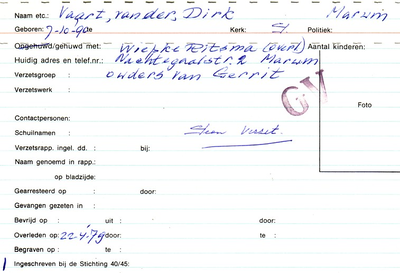 Naam etc.: Vaart, van der, Dirk Marum
Geboren: 7-10-90 te Kerk: Politiek:
Opgehuwd/gehuwd met: Wiepke Ritsma (overl) Aantal kinderen:
Huidig adres en telef.nr.: Nachtegaalstr. 2 Marum
Verzetsgroep : ouders van Gerrit
Verzetswerk :
GV
Foto
Contactpersonen:
Schuilnamen :
Verzetsrapp. ingel. dd. : bij:
Naam genoemd in rapp.:
op bladzijde:
Gearresteerd op : door:
Gevangen gezeten in :
Bevrijd op : uit : door:
Overleden op: 22-4-79 door: te :
Begraven op : te :
Ingeschreven bij de Stichting 40/45: